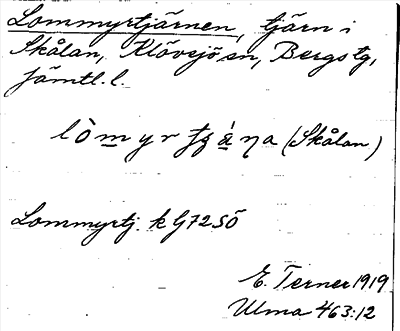 Lommyrtjärnen, tjärn i
Skålan, Klövsjö sn, Bergs tg,
Jämtl. l.
(Skålan)
Lommyrtj. k G72SÖ
E. Terner 1919
Ulma 463:12